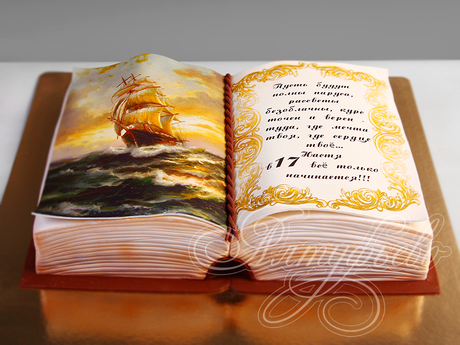 Пусть будут
полны паруса,
рассветы
безоблачны, курс
точен и верен -
туда, где мечта
твоя, где сердце
твоё...
Настя
в 17 всё только
начинается!!!